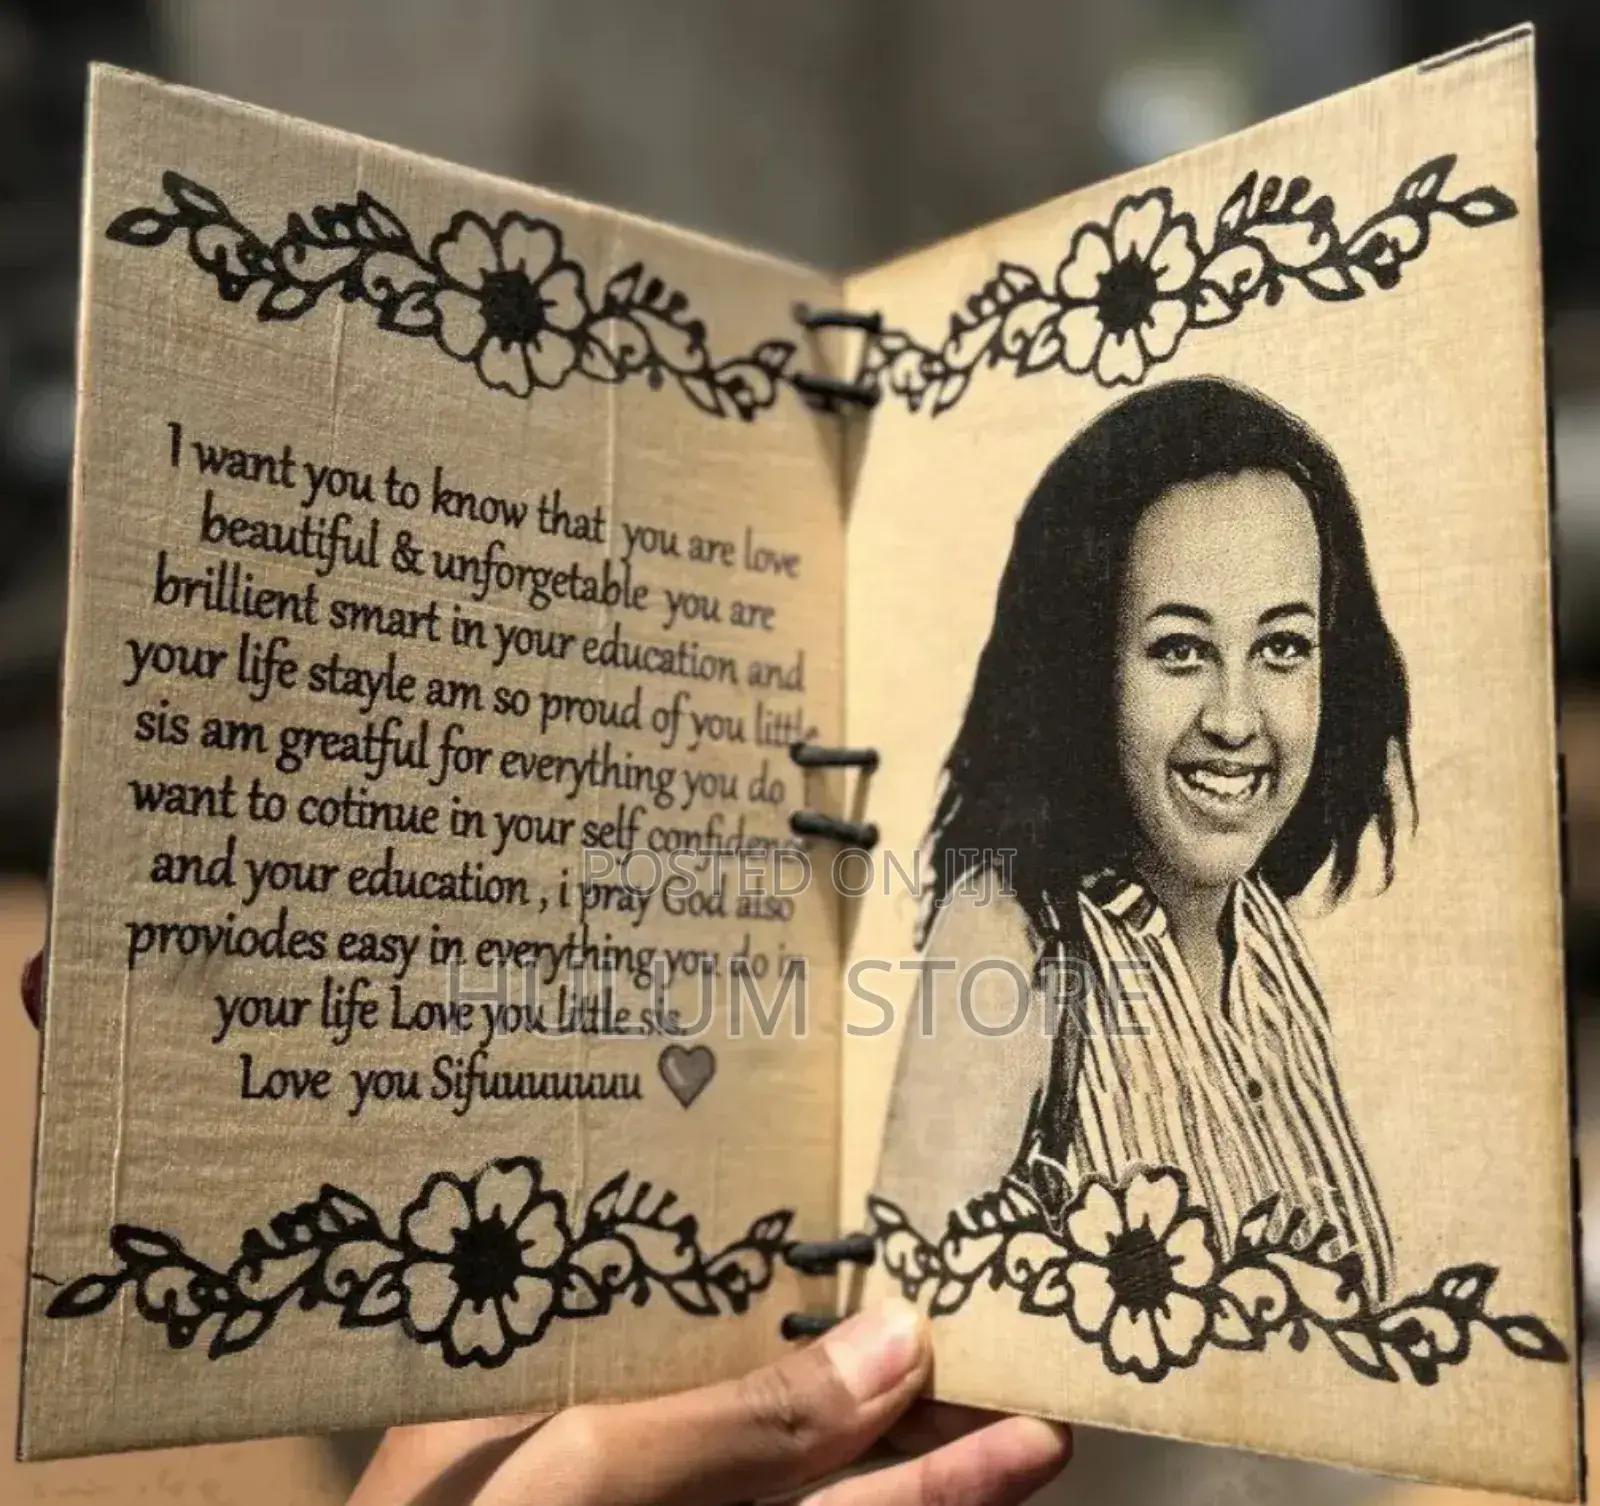 I want you to know that you are love
beautiful & unforgetable you are
brillient smart in your education and
your life stayle am so proud of you little
sis am greatful for everything you do
want to cotinue in your self confidence
and your education , i pray God also
proviodes easy in everything you do in
your life Love you little sis.
Love you Sifuuuuuuu
POSTED ON JIJI
HULUM STORE